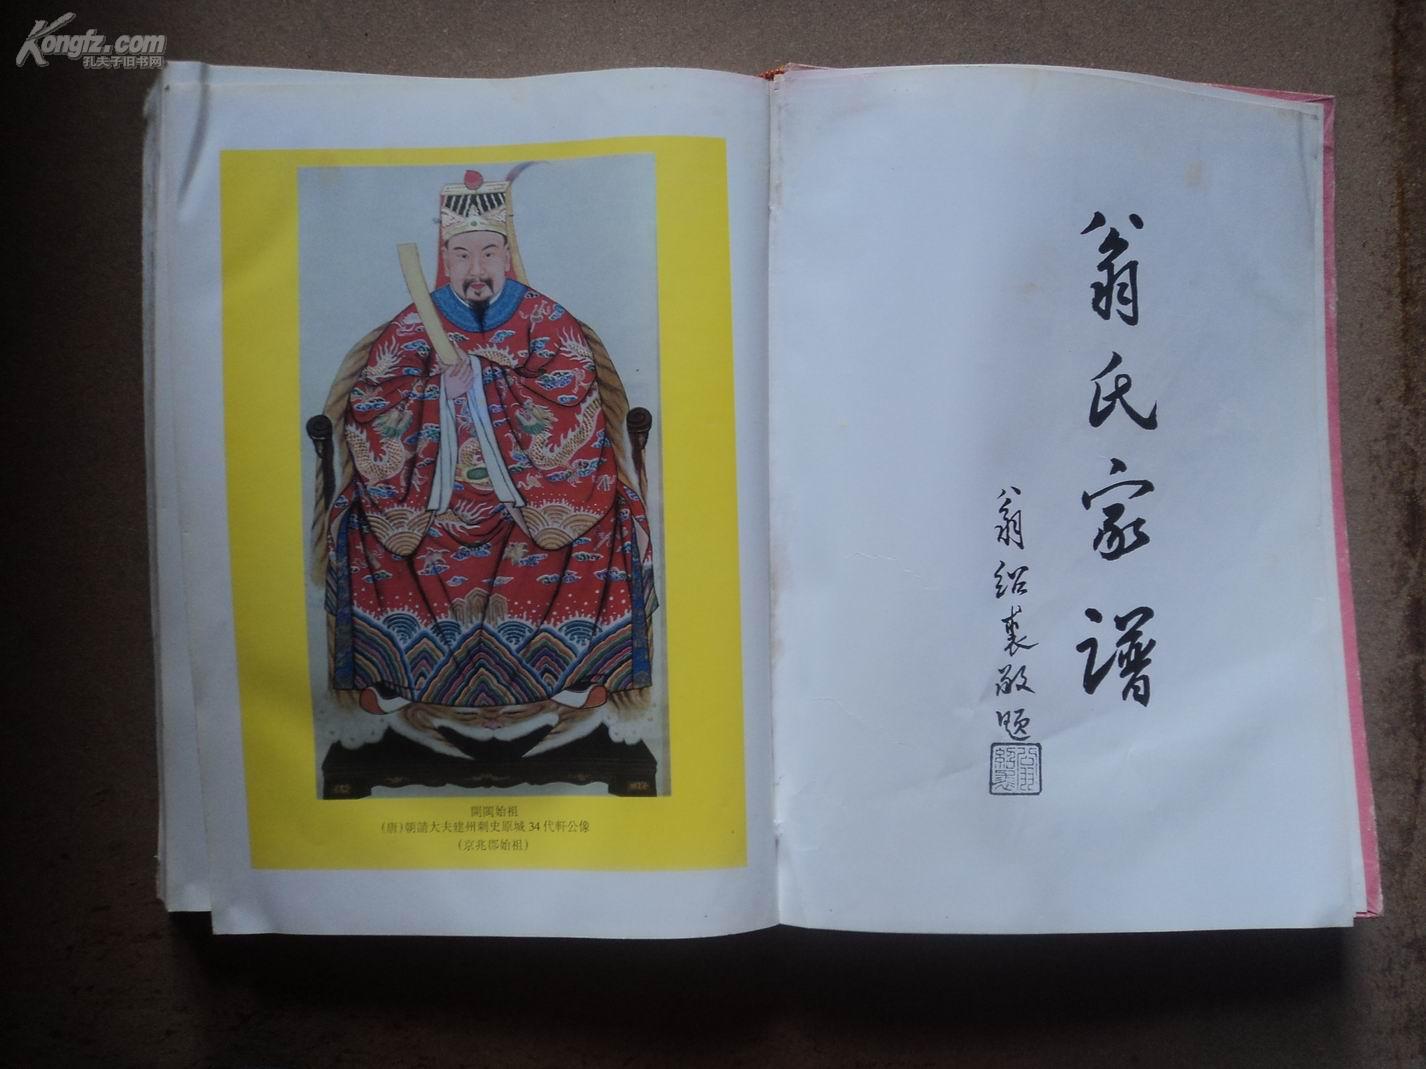 Kongfz.com
孔夫子旧书网
開閩始祖
(唐)朝請大夫建州刺史原城34代軒公像
(京兆郡始祖)
翁氏家譜
翁紹裘敬題